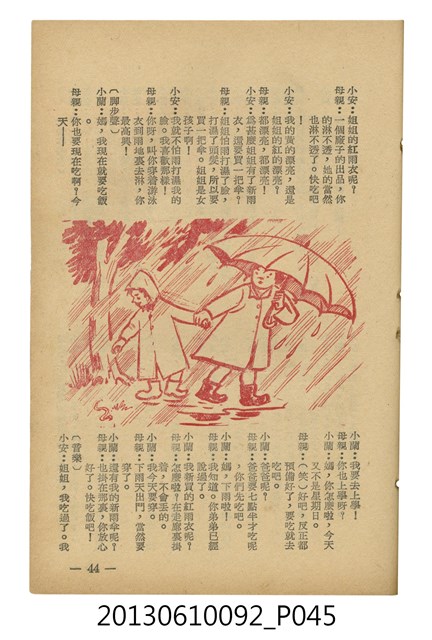 小安：姐姐的紅雨衣呢？
母親：一個廠子的出品，你
的淋不透，她的當然
也淋不透了。快吃吧
！
小安：我的黃的漂亮，還是
姐姐的紅的漂亮？
母親：都漂亮，都漂亮！
小安：爲甚麼姐姐有了新雨
衣，還要買一把傘？
母親：姐姐怕雨打濕了臉，
打濕了頭髮，所以要
買一把傘。姐姐是女
孩子啊！
小安：我就不怕雨打濕我的
臉。我喜歡那樣！
母親：你呀，叫你穿着游泳
衣到雨地裏去淋，你
最高興！
（脚步聲）
小蘭：媽，我現在就要吃飯
。
母親：你也要現在吃啊？今
天——
小蘭：我要去上學！
母親：你也上學呀？
小蘭：媽，你怎麼啦，今天
又不是星期日。
母親：（笑）好吧，反正都
預備好了，要吃就去
吃吧。
小蘭：爸爸呢？
母親：爸爸要七點半才吃呢
，你們先吃吧。
小蘭：媽，下雨啦！
母親：我知道。你弟弟已經
說過了。
小蘭：我新買的紅雨衣呢？
母親：怎麼啦？在走廊裏掛
着，不會丟的。
小蘭：我今天要穿。
母親：下雨天出門，當然要
穿了。
小蘭：還有我的新雨傘呢？
母親：也掛在那裏，你放心
好了。快吃飯吧！
（音樂）
小安：姐姐，我吃過了。我
— 44 —
20130610092_P045